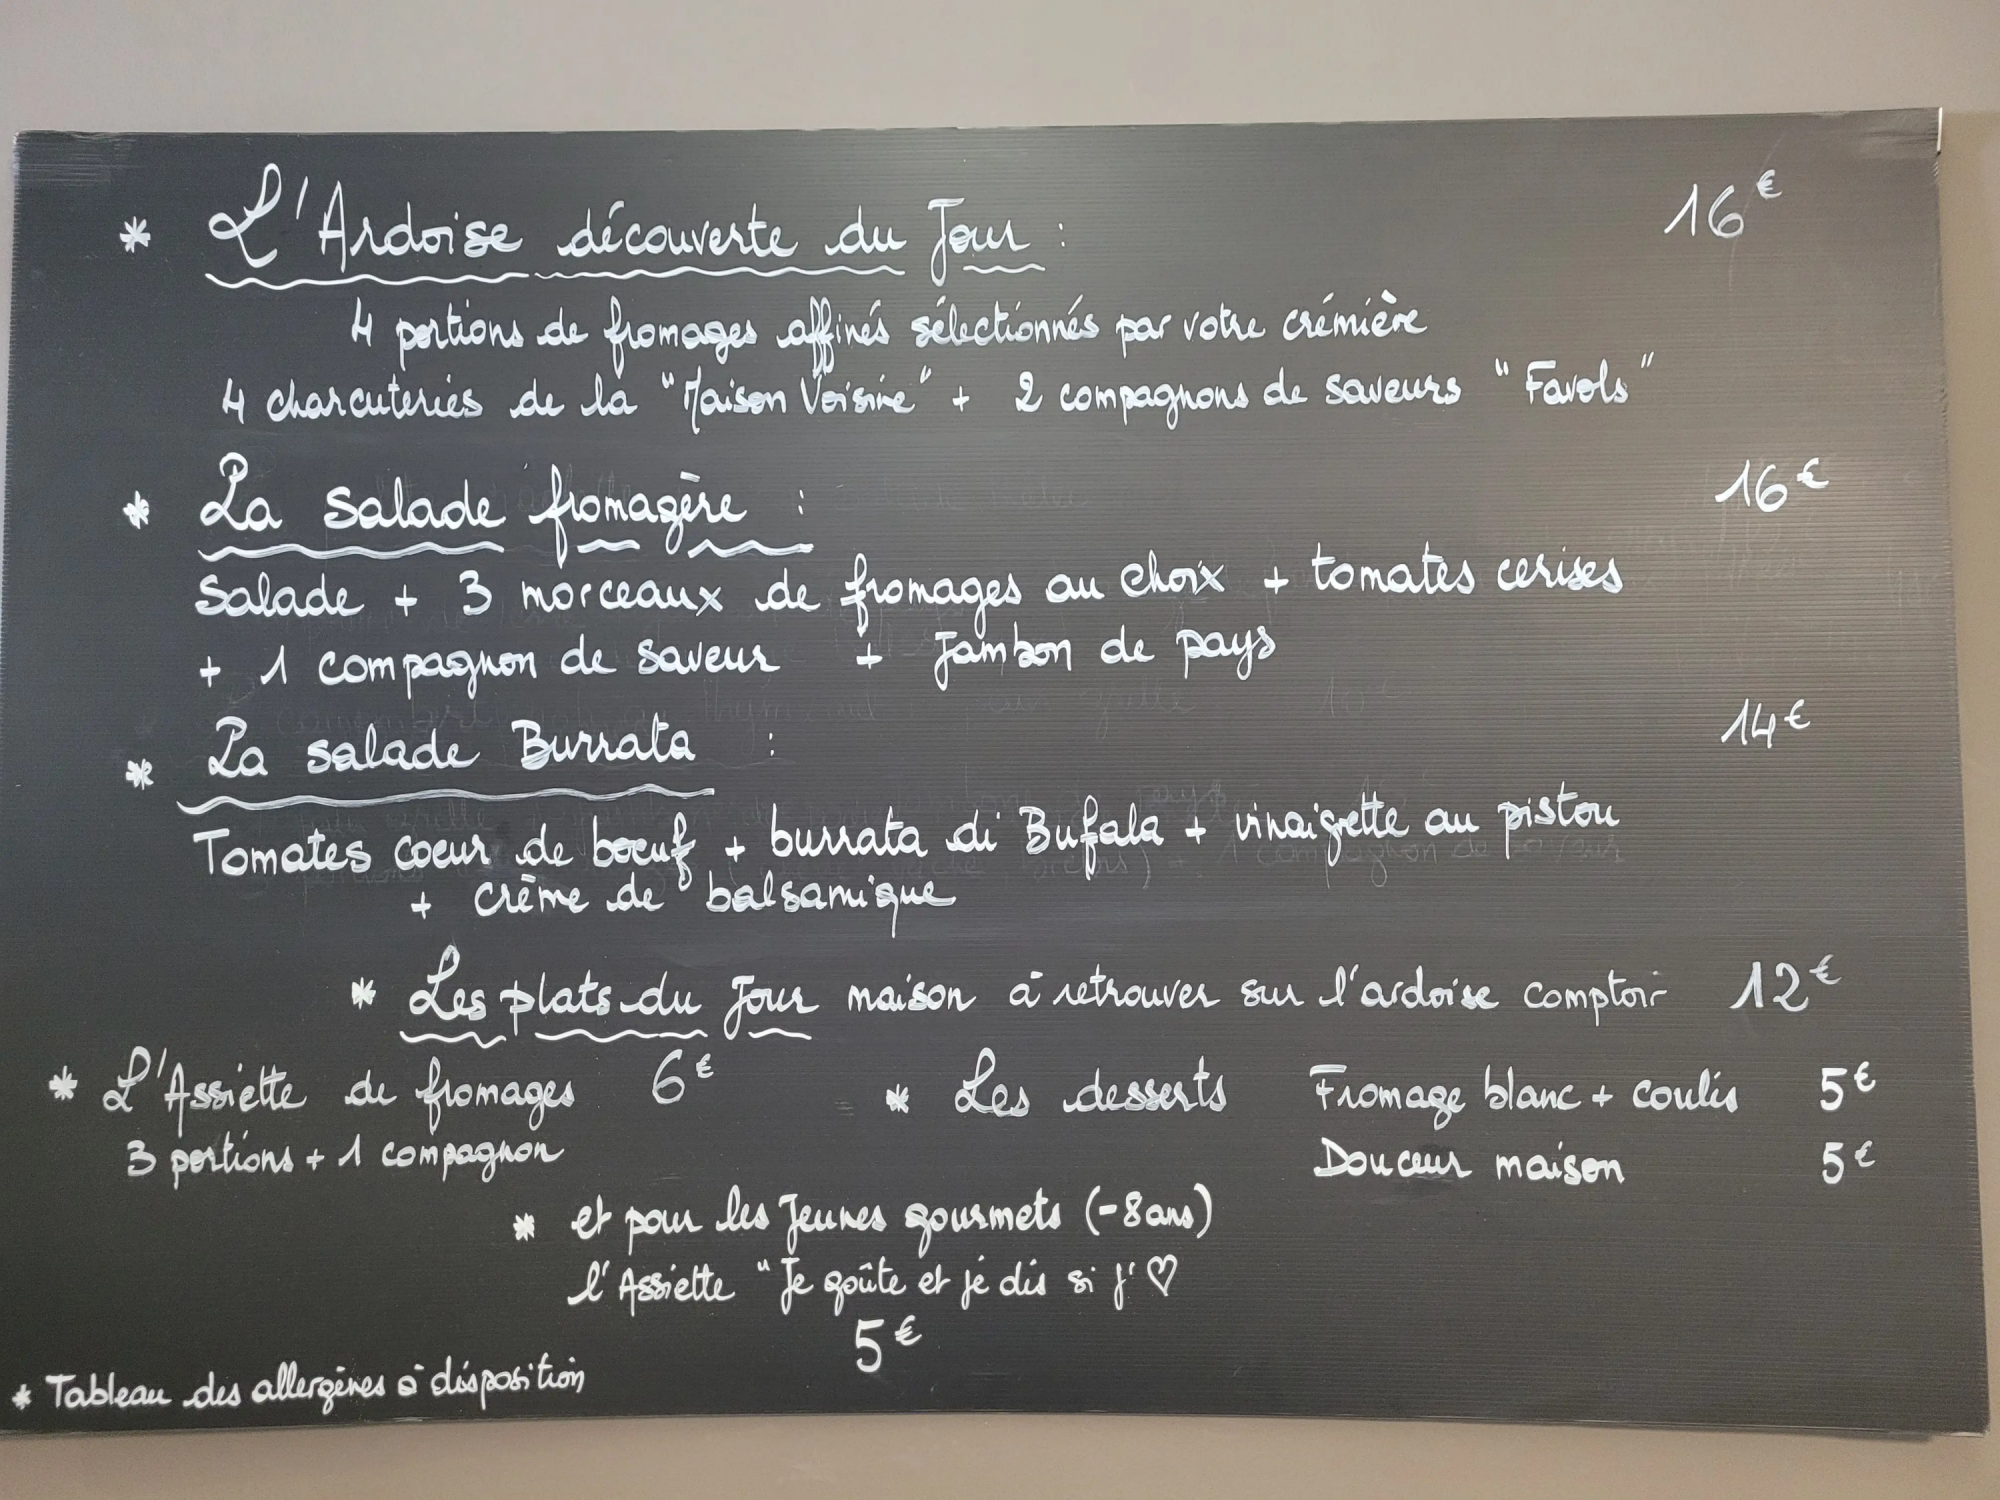 * L'Ardoise découverte du Jour : 16€
4 portions de fromages affinés sélectionnés par votre crémière
4 charcuteries de la "Maison Voisine" + 2 compagnons de saveurs "Favols"
* La salade fromagère : 16€
Salade + 3 morceaux de fromages au choix + tomates cerises
+ 1 compagnon de saveur + Jambon de pays
* La salade Burrata : 14€
Tomates coeur de boeuf + burrata di Bufala + vinaigrette au pistou
+ crème de balsamique
* Les plats du Jour maison à retrouver sur l'ardoise comptoir 12€
* L'Assiette de fromages 6€
3 portions + 1 compagnon
* Les desserts Fromage blanc + coulis 5€
Douceur maison 5€
* et pour les Jeunes gourmets (-8ans)
l'Assiette "Je goûte et je dis si j'♡
5€
* Tableau des allergènes à disposition